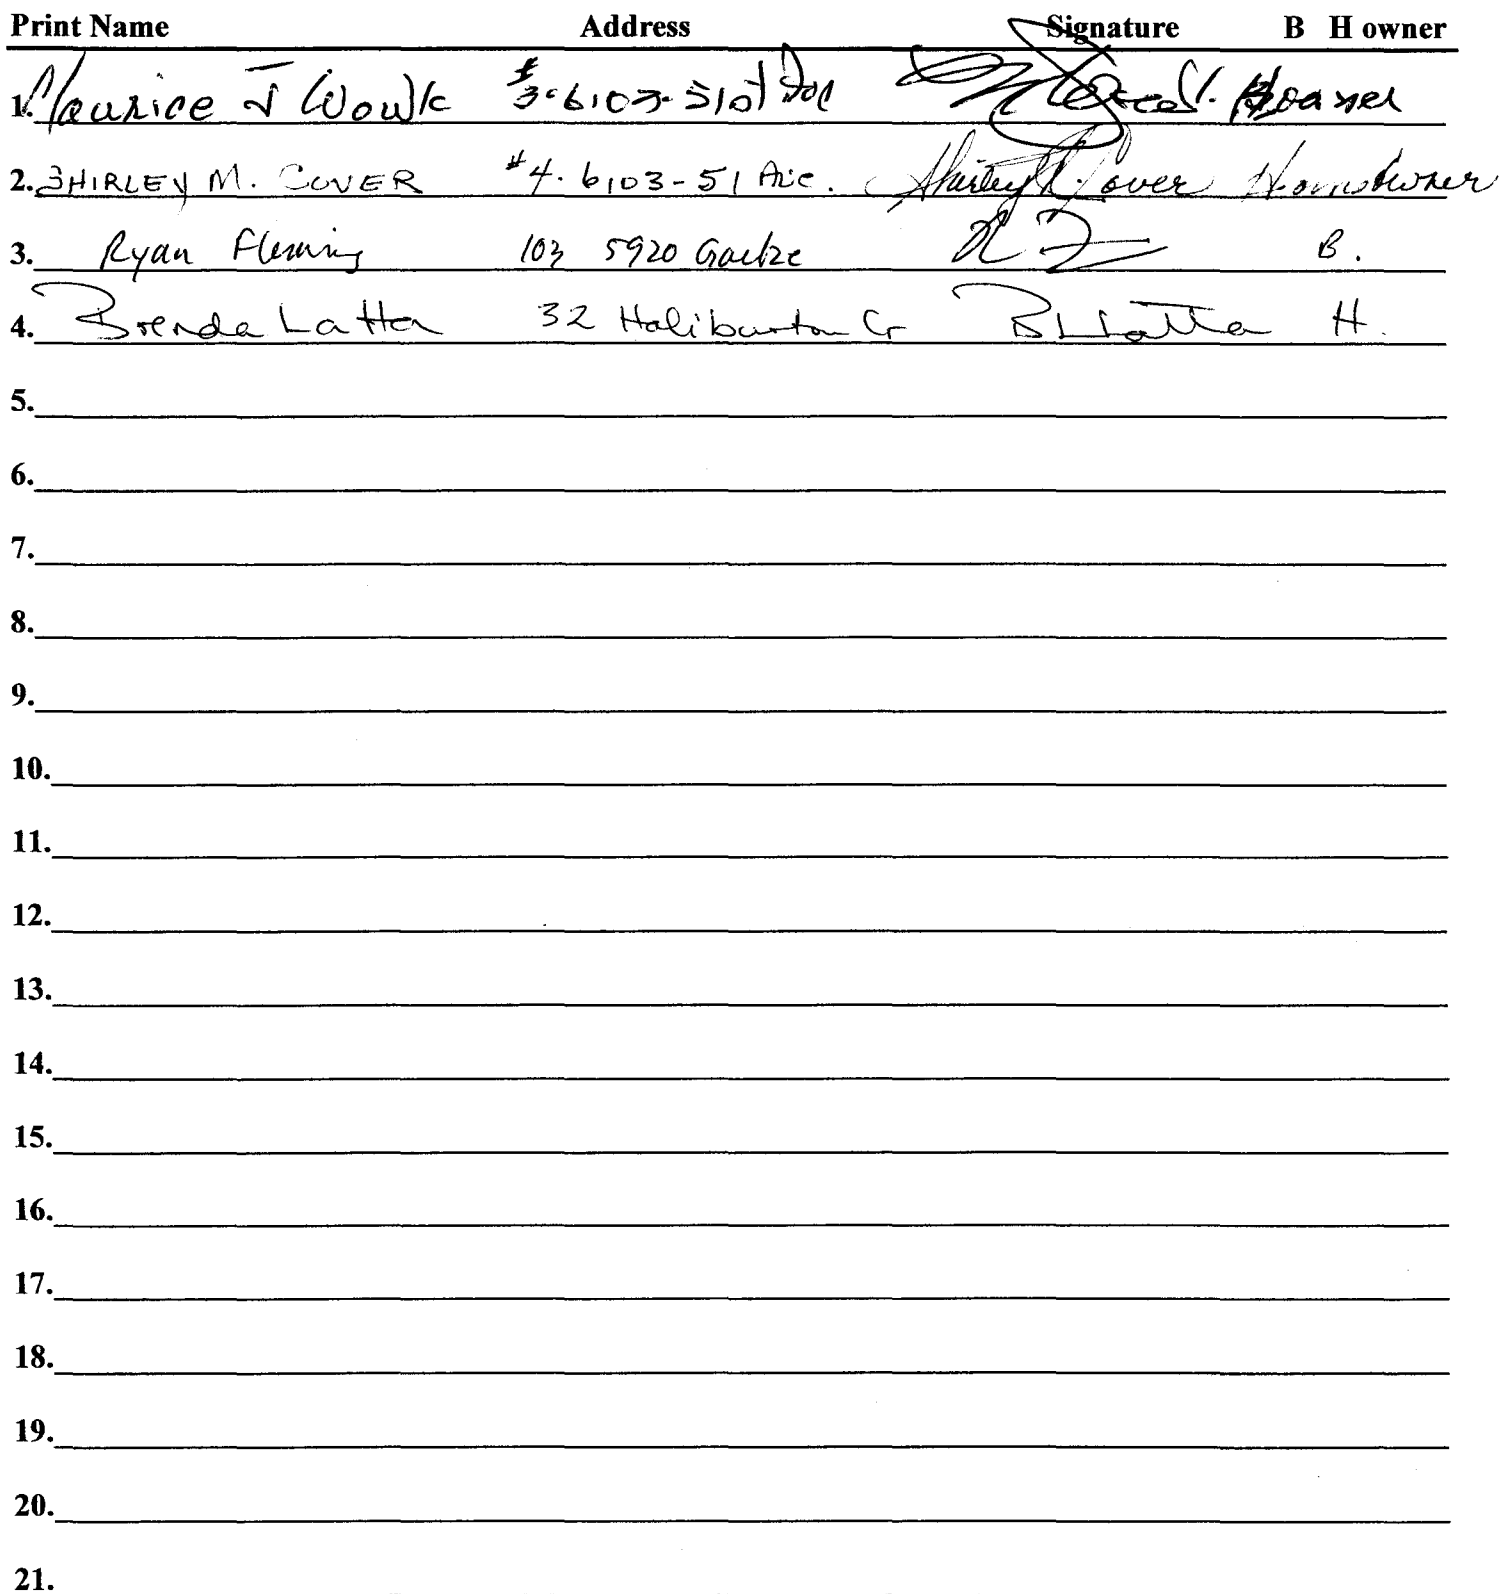 Print Name Address Signature B H owner
1. Maurice J Wowk #3-6103-51
2. SHIRLEY M. COVER #4-6103-51 Ave. Shirley M. Cover Homeowner
3. Ryan Fleming 103 5920 B.
4. Brenda Latta 32 Haliburton Cr B L Latta H.
5.
6.
7.
8.
9.
10.
11.
12.
13.
14.
15.
16.
17.
18.
19.
20.
21.